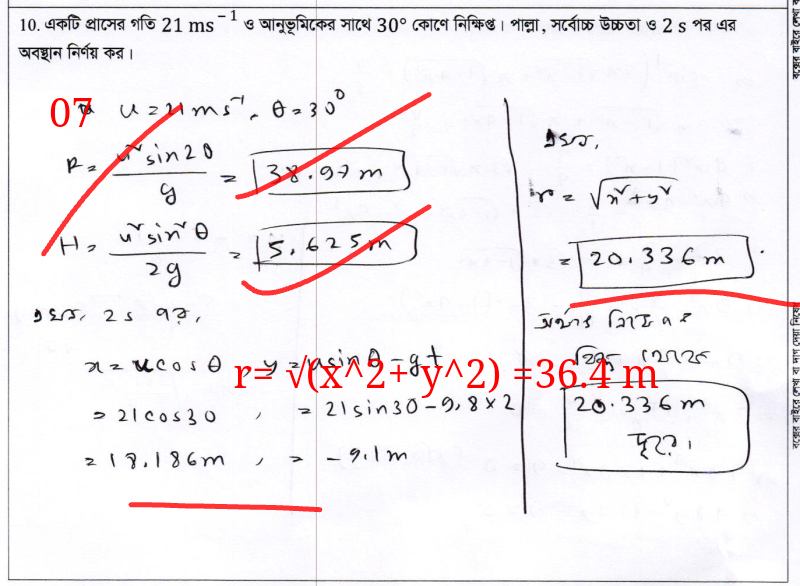 10. একটি প্রাসের গতি 21 ms⁻¹ ও আনুভূমিকের সাথে 30° কোণে নিক্ষিপ্ত। পাল্লা, সর্বোচ্চ উচ্চতা ও 2 s পর এর
অবস্থান নির্ণয় কর।
07
u = 21 ms⁻¹, θ = 30°
R = u² sin2θ / g = 38.97 m
H = u² sin²θ / 2g = 5.625 m
এখন, 2s পর,
x = u cosθ, y = u sinθ - gt
= 21 cos30, = 21 sin30 - 9.8 × 2
= 18.186 m, = -9.1 m
r= √(x^2+y^2) =36.4 m
এখন,
r = √x²+y²
= 20.336 m
অর্থাৎ
থেকে
20.336 m
দূরে।
বক্সের বাইরে লেখা বা দাগ দেয়া নিষেধ